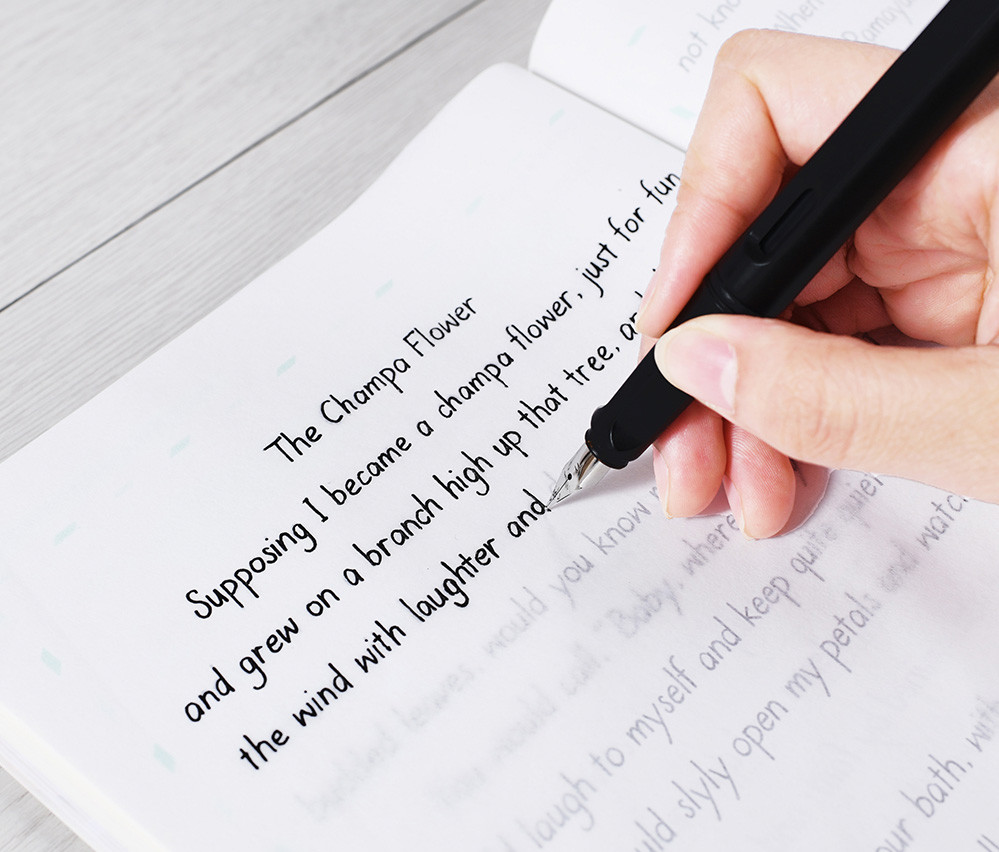 not kno
When
Ramaya
The Champa Flower
Supposing I became a champa flower, just for fun,
and grew on a branch high up that tree, an
the wind with laughter and
would you know
budded leaves,
quiet
call, "Baby, where
laugh to myself and keep quite
uld slyly open my petals and watc
our bath, with